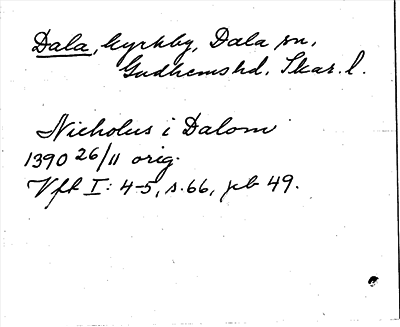 Dala, kyrkby, Dala sn,
Gudhems hd, Skar. l.
Nicholus i Dalom
1390 26/11 orig.
Vft I: 4-5, s. 66, jb 49.